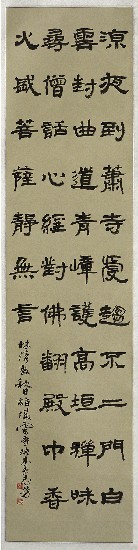 涼夜到蕭寺不二門白
雲封曲道青嶂護高垣禪味
尋僧話心經對佛翻殿中香
火盛菩薩靜無言